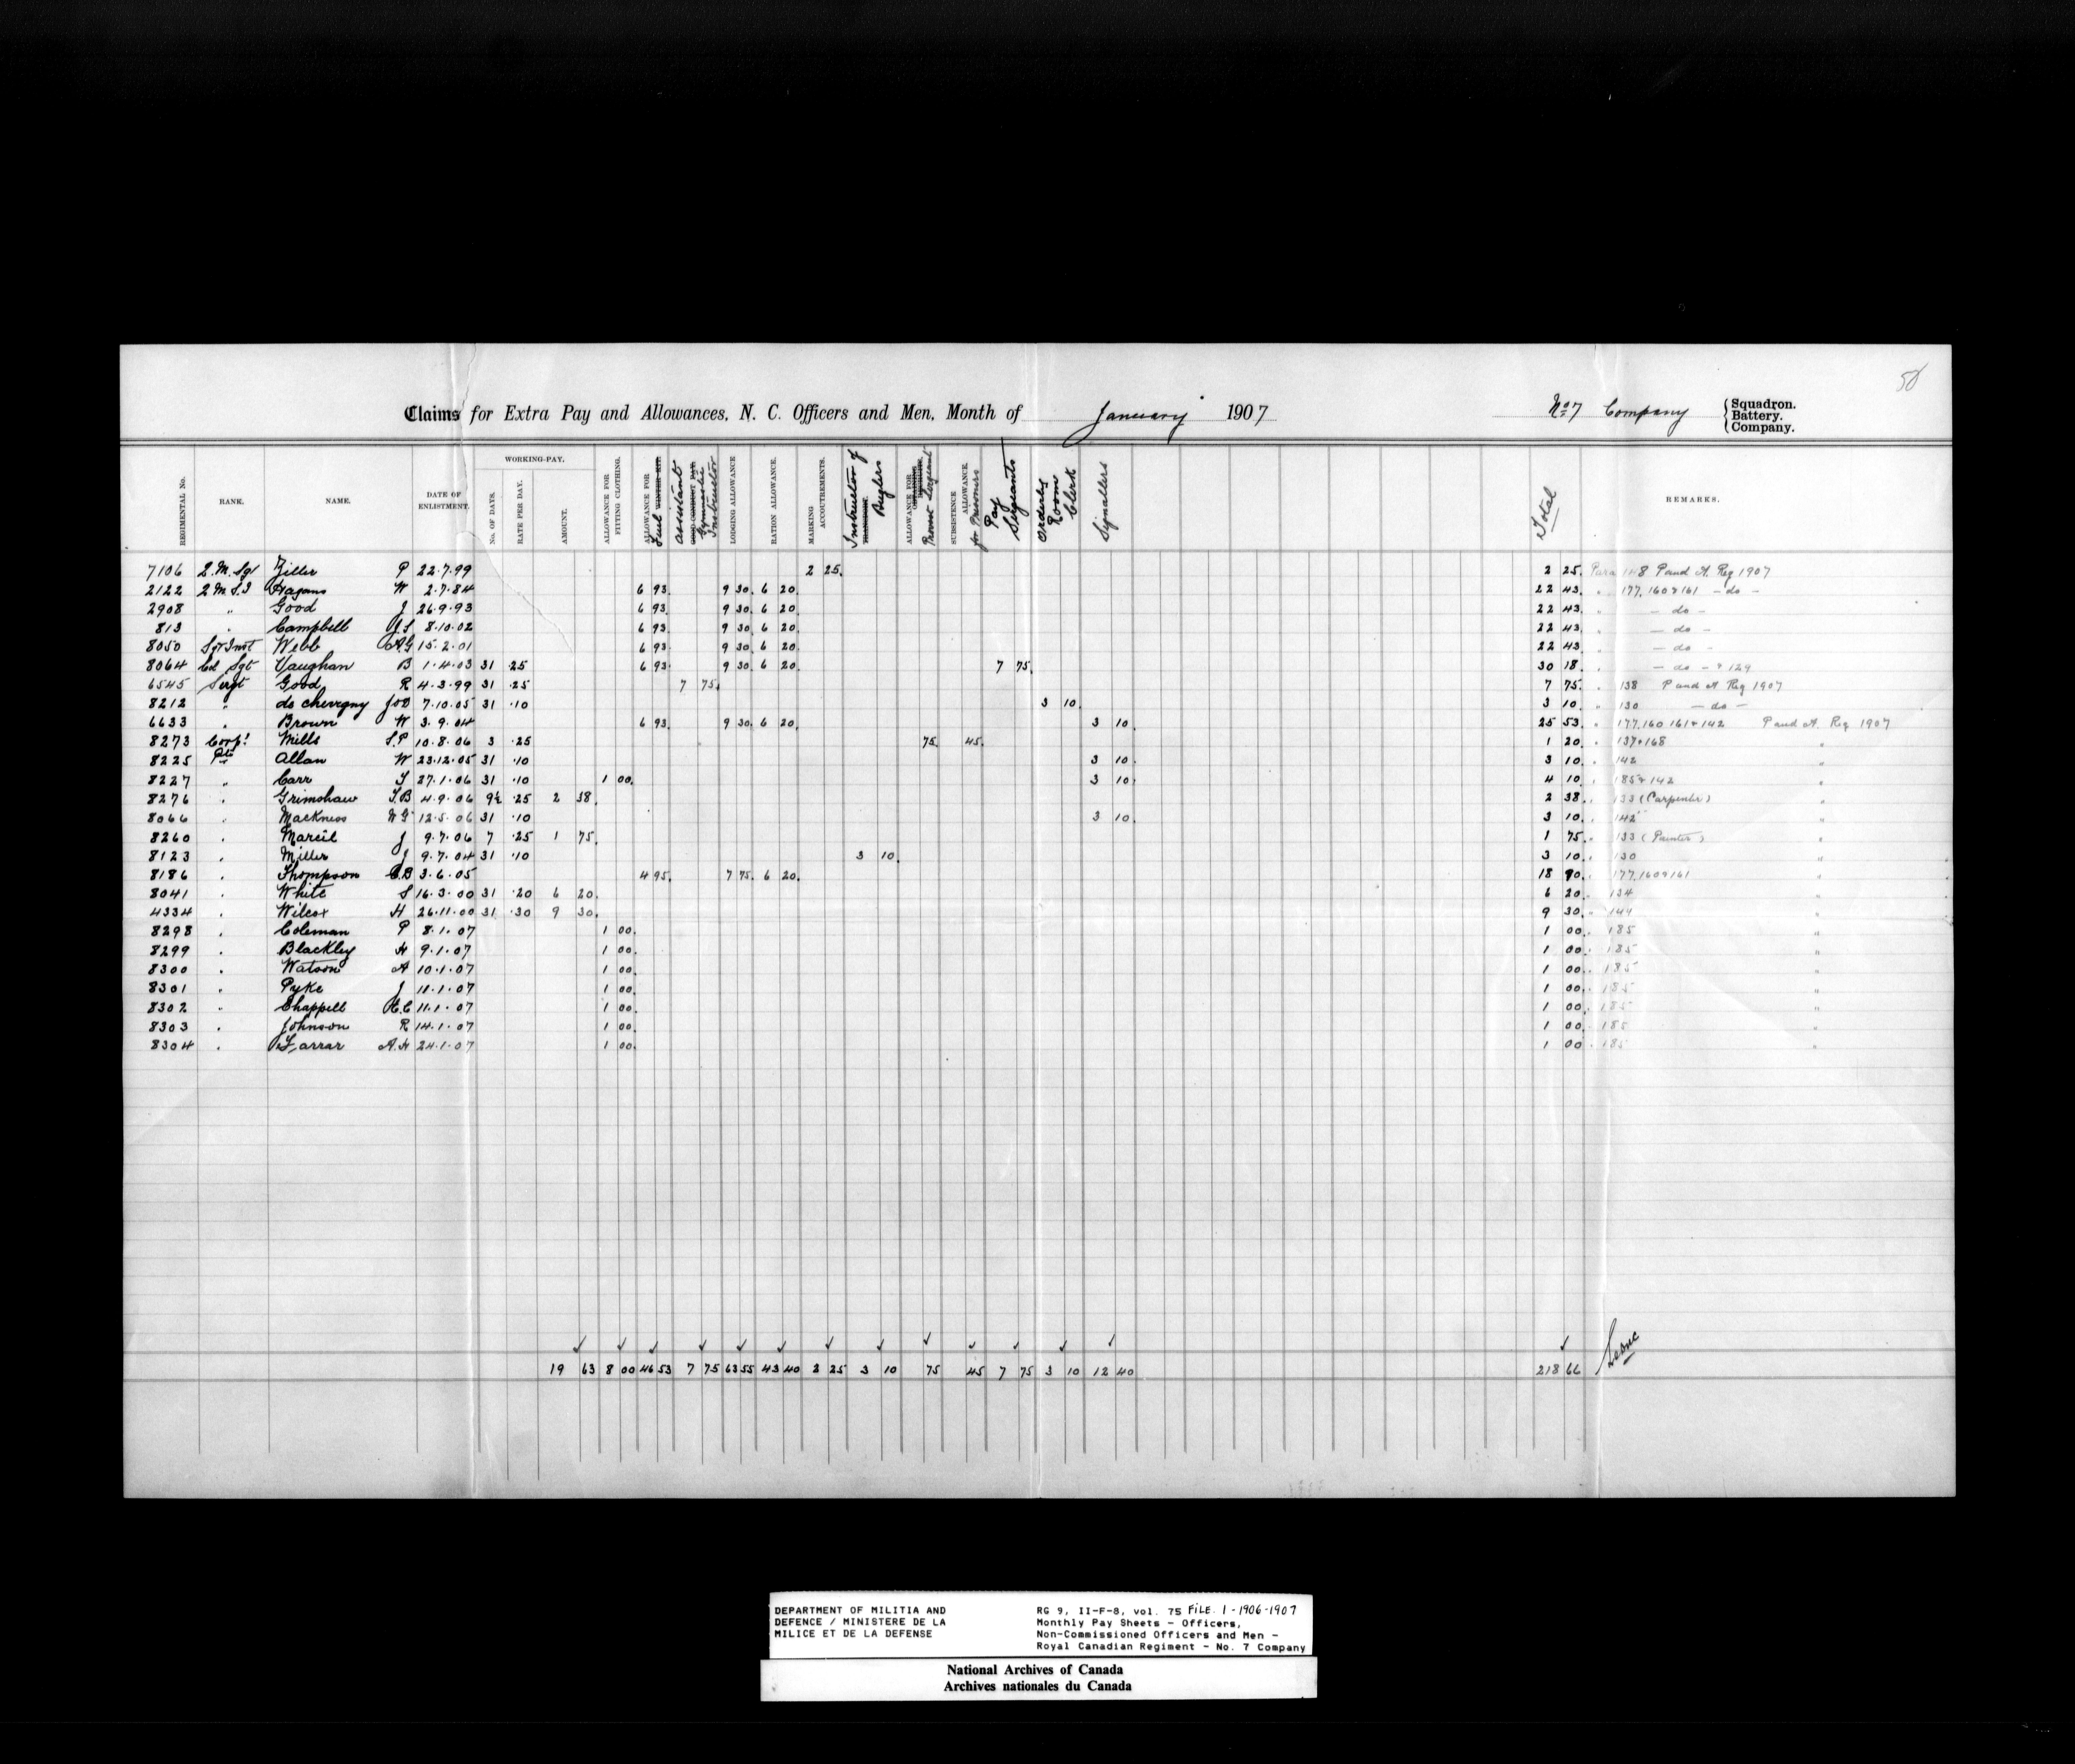 50
Claims for Extra Pay and Allowances, N. C. Officers and Men, Month of January 1907 No 7 Company {Squadron. Battery. Company.
REGIMENTAL No. RANK. NAME. DATE OF ENLISTMENT. WORKING-PAY. No. OF DAYS. RATE PER DAY. AMOUNT. ALLOWANCE FOR FITTING CLOTHING. ALLOWANCE FOR Fuel WINTER KIT. assistant GOOD CONDUCT PAY. Gymnastic Instructor LODGING ALLOWANCE RATION ALLOWANCE. MARKING ACCOUTREMENTS. Instructor of Buglers ALLOWANCE FOR Provost Sergeant SUBSISTENCE ALLOWANCE. for Prisoners Pay Sergeants Orderly Room Clerk Signallers Total REMARKS.
7106 Q.M. Sgt Ziller P 22.7.99 2 25. 2 25. Para 148 P and A. Reg 1907
2122 Q M S.I Hagans W 2.7.84 6 93. 9 30. 6 20. 22 43. " 177, 160 & 161 - do -
2908 " Good J 26.9.93 6 93. 9 30. 6 20. 22 43. " - do -
813 " Campbell 8.10.02 6 93. 9 30. 6 20. 22 43. " - do -
8050 Sgt Inst Webb A G 15.2.01 6 93. 9 30. 6 20. 22 43. " - do -
8064 Col Sgt Vaughan B 1.4.03 31 .25 6 93. 9 30. 6 20. 7 75. 30 18. " - do - & 129
6545 Sergt Good R 4.3.99 31 .25 7 75. 7 75. " 138 P and A Reg 1907
8212 " de chevrgny J O D 7.10.05 31 .10 3 10. 3 10. " 130 - do -
6633 " Brown W 3.9.04 6 93. 9 30. 6 20. 3 10. 25 53. " 177, 160 161 & 142 P and A. Reg 1907
8273 Corpl Mills S.P 10.8.06 3 .25 75. 45. 1 20. " 137 & 168 "
8225 Pte Allan W 23.12.05 31 .10 3 10. 3 10. " 142 "
8227 " Carr S 27.1.06 31 .10 1 00. 3 10. 4 10. " 185 & 142 "
8276 " Grimshaw T.B 4.9.06 9½ .25 2 38. 2 38. " 133 (Carpenter) "
8066 " Mackness 12.5.06 31 .10 3 10. 3 10. " 142 "
8260 " Marcil J 9.7.06 7 .25 1 75. 1 75. " 133 (Painter) "
8123 " Miller J 9.7.04 31 .10 3 10. 3 10. " 130 "
8186 " Thompson C.B 3.6.05 4 95. 7 75. 6 20. 18 90. " 177, 160 & 161 "
8041 " White S 16.3.00 31 .20 6 20. 6 20. " 134 "
4334 " Wilcox H 26.11.00 31 .30 9 30. 9 30. " 144 "
8298 " Coleman P 8.1.07 1 00. 1 00. " 185 "
8299 " Blackley H 9.1.07 1 00. 1 00. " 185 "
8300 " Watson A 10.1.07 1 00. 1 00. " 185 "
8301 " Pyke J 11.1.07 1 00. 1 00. " 185 "
8302 " Chappell H.C 11.1.07 1 00. 1 00. " 185 "
8303 " Johnson R 14.1.07 1 00. 1 00. " 185 "
8304 " Farrar A.H 24.1.07 1 00. 1 00 " 185 "
19 63 8 00 46 53 7 75 63 55 43 40 2 25 3 10 75 45 7 75 3 10 12 40 218 66
DEPARTMENT OF MILITIA AND
DEFENCE / MINISTERE DE LA
MILICE ET DE LA DEFENSE
RG 9, II-F-8, vol. 75 FILE. 1 - 1906-1907
Monthly Pay Sheets - Officers,
Non-Commissioned Officers and Men -
Royal Canadian Regiment - No. 7 Company
National Archives of Canada
Archives nationales du Canada